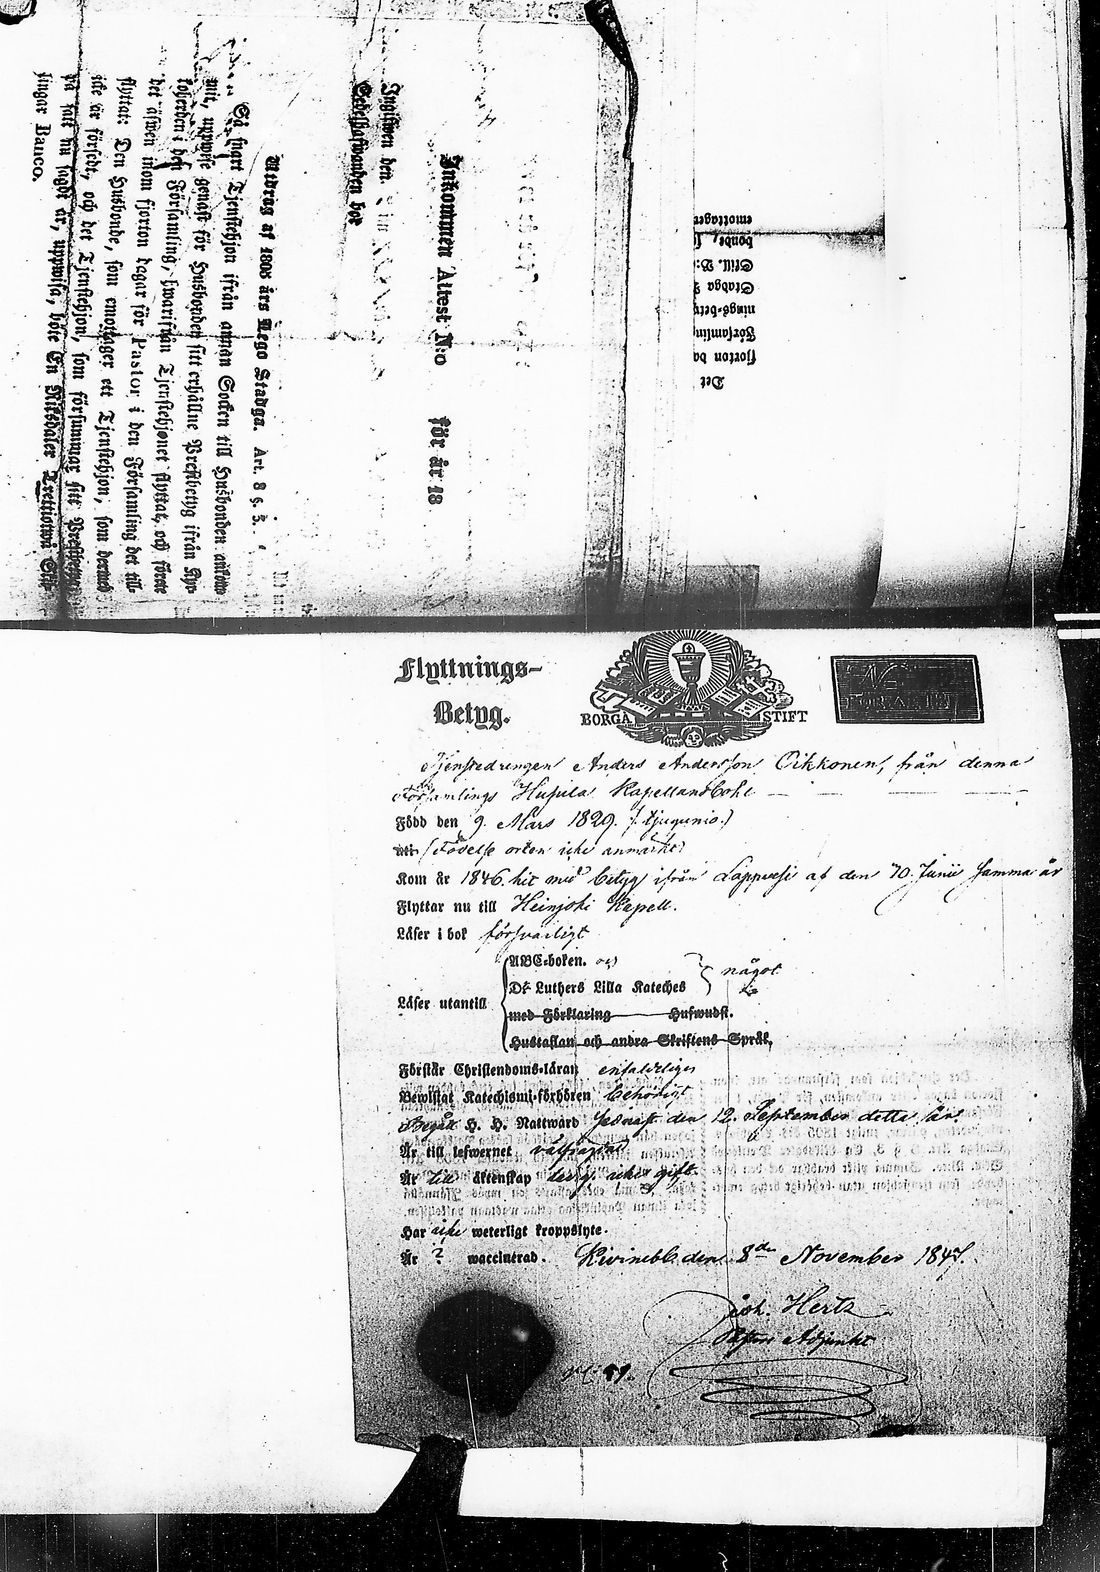 Utdrag af 1805 års Lego Stadga. Art. 8 §. 3.
Så snart Tjenstehjon ifrån annan Socken till Husbonden ankom-
mit, uppwise genast för Husbonden sitt erhållne Prestbetyg ifrån Ky-
koherden i den Församling, hwarifrån Tjenstehjonet flyttat, och förete
det äfwen inom fjorton dagar för Pastor i den Församling det till-
flyttat: Den Husbonde, som emottager ett Tjenstehjon, som dermed
icke är försedt, och det Tjenstehjon, som försummar sitt Prestbetyg
på sätt nu sagdt är, uppwisa, böte En Riksdaler Trettiotwå Skil-
lingar Banco.
Inkommen Attest N:o för år 18
Ingifwen den
Sedelhafwanden bor
Det
fjorton da
Församlin
nings-bety
Stadga
Skill. B:
bonde,
emottager
Flyttnings-
Betyg.
BORGÅ STIFT
N
FÖR ÅR 18
Tjenstedrengen Anders Andersson Oikkonen, från denna
Församlings Hujula Kapellansbohl
Född den 9. Mars 1829. (tjugunio.)
(Födelse orten icke anmärkt)
Kom år 1846. hit med betyg ifrån Lappvesi af den 10. Junii samma år
Flyttar nu till Heinjoki Kapell.
Läser i bok försvarligt
Läser utantill
ABC-boken. och
Dr Luthers Lilla Kateches
något
med Förklaring Hufwudst.
Hustaflan och andra Skriftens Språk.
Förstår Christendoms-läran enfaldeligen
Bewistat Katechismi-förhören behörigt
Begått H. H. Nattward sednast den 12. September detta år.
Är till lefwernet välfrägdad
Är till äktenskap ledig. icke gift.
Har icke weterligt kroppslyte.
Är ? waccinerad. Kivineb den 8de November 1847.
Joh. Hertz
Adjunkt